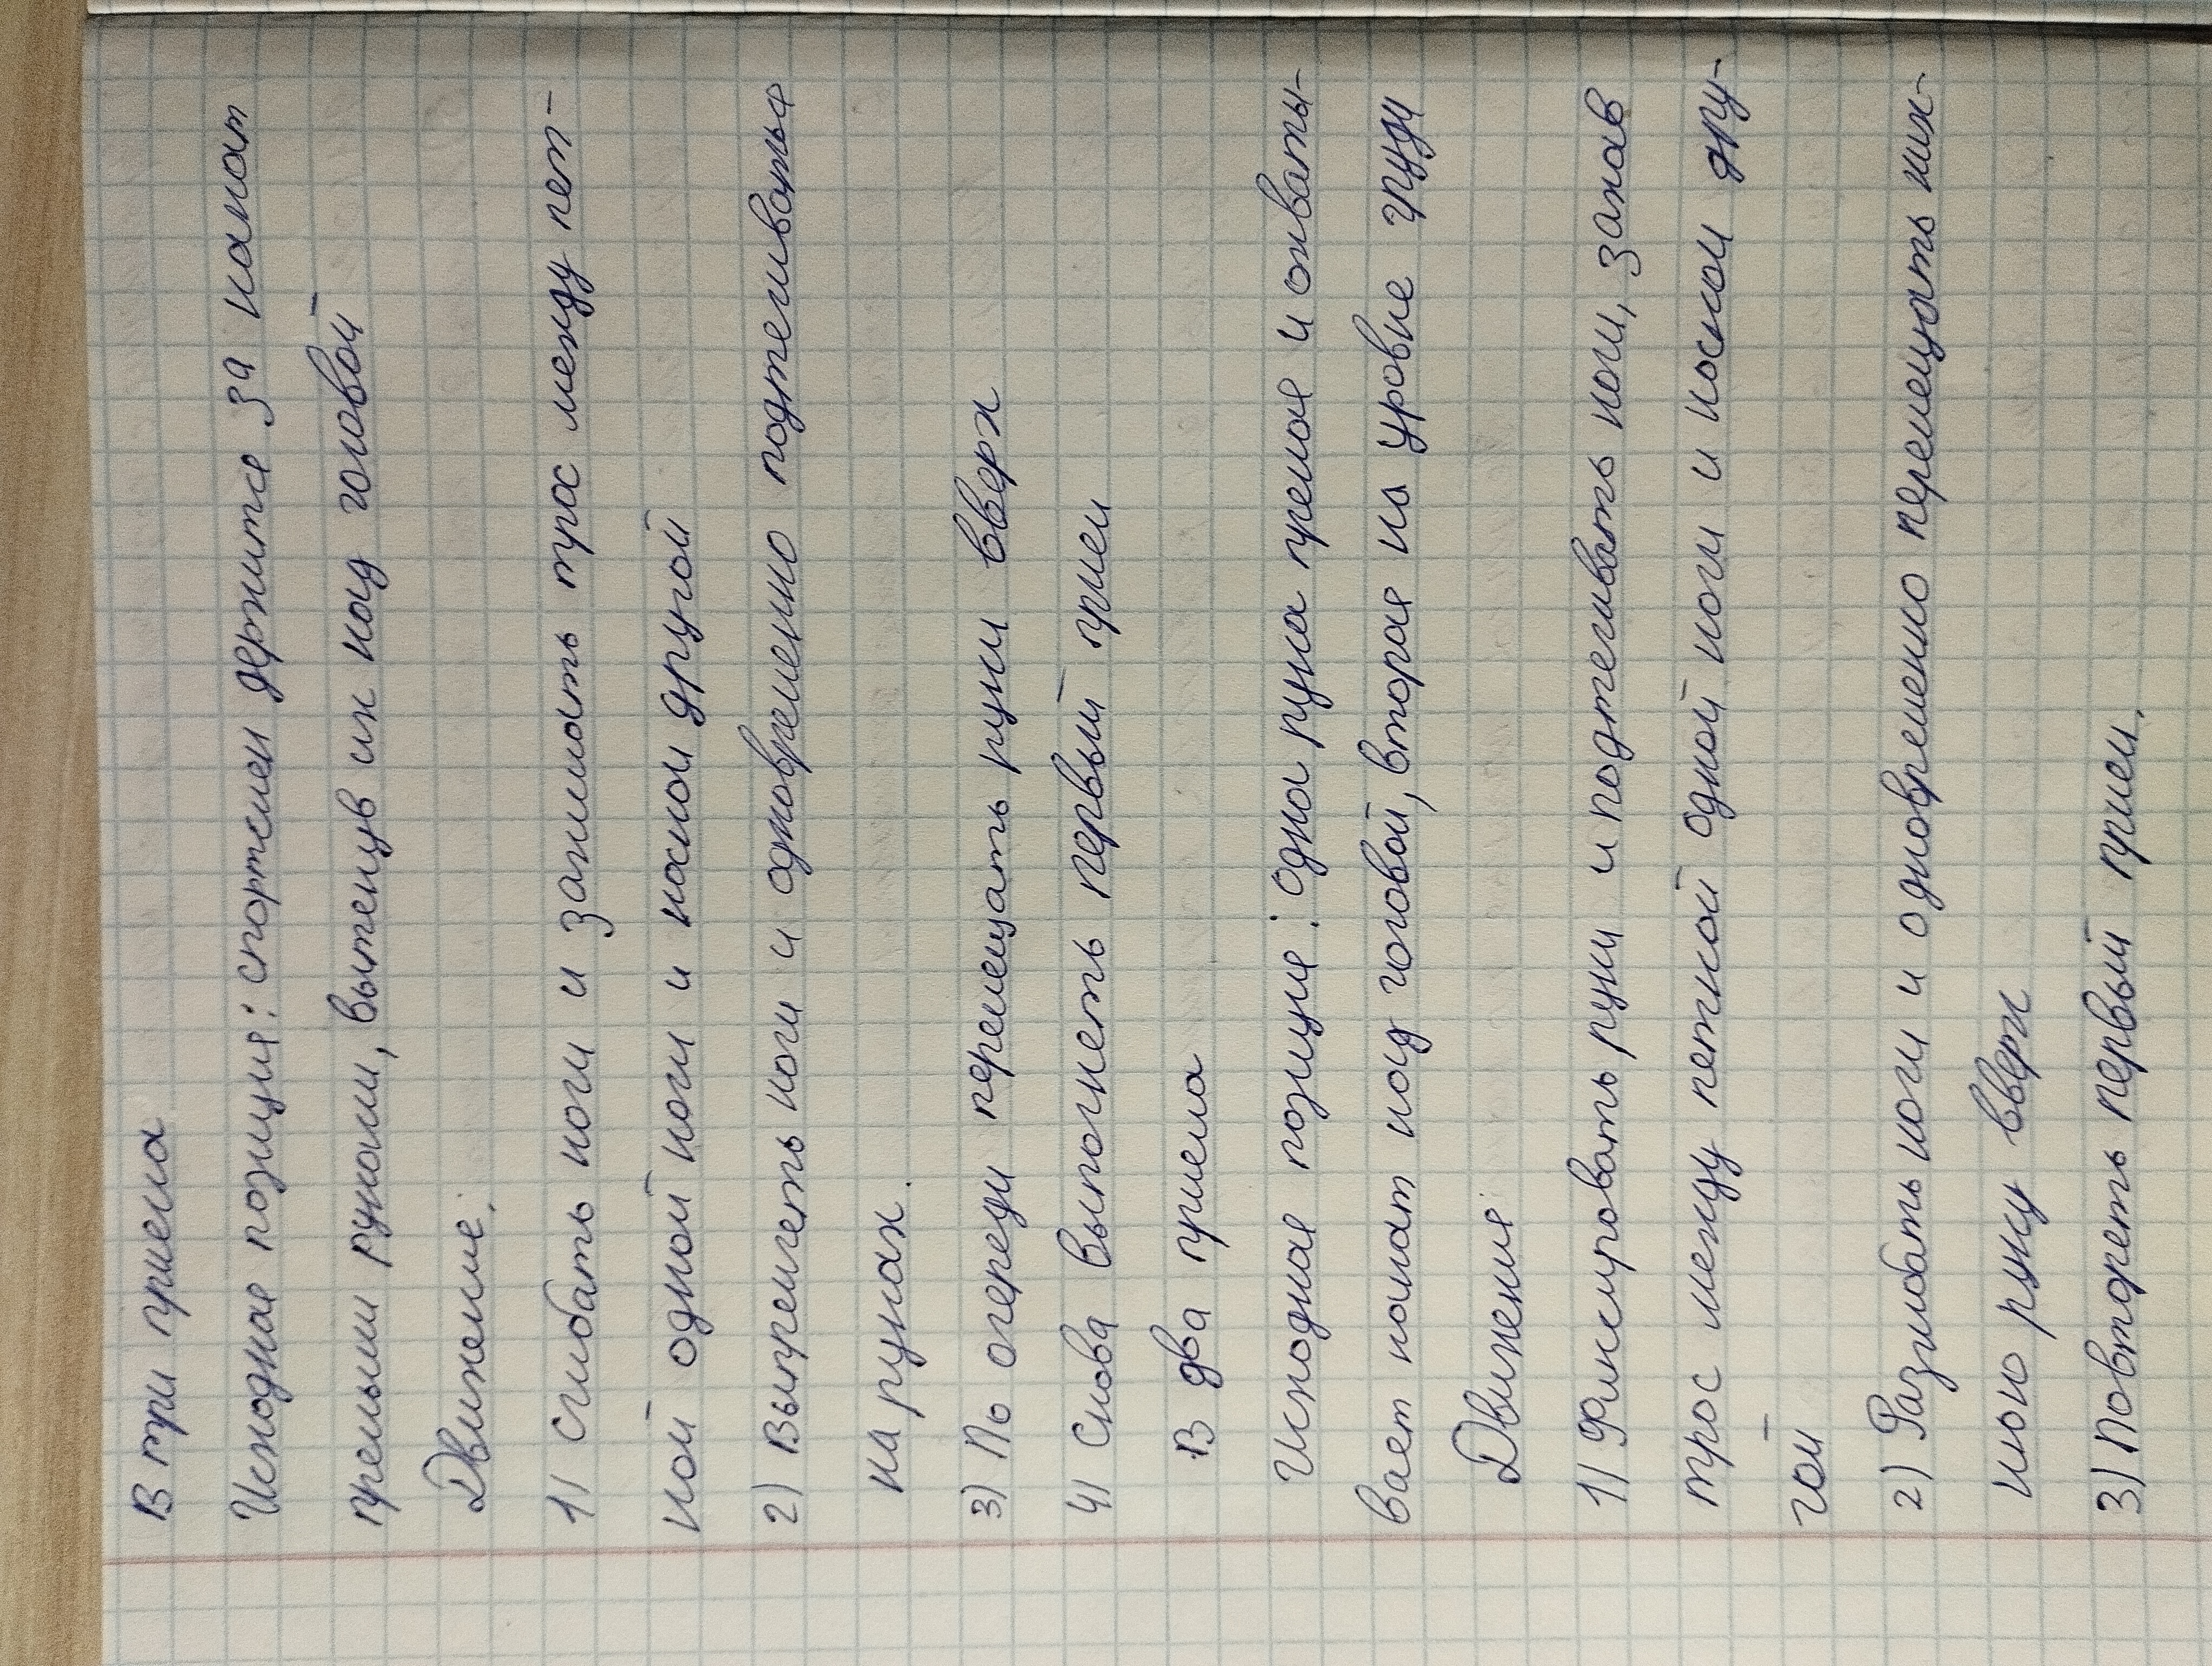 В три приема
Исходная позиция: спортсмен держится за канат
прямыми руками, вытянув их над головой
Движение:
1) сгибать ноги и зажимать трос между пят-
кой одной ноги и носком другой
2) Выпрямлять ноги и одновременно подтягиваться
на руках.
3) По очереди перемещать руки вверх
4) Снова выполнять первый прием
В два приема
Исходная позиция: одна рука прямая и охваты-
вает канат над головой, вторая на уровне груди
Движения
1) Фиксировать руки и подтягивать ноги, зажав
трос между пяткой одной ноги и носком дру-
гой
2) Разгибать ноги и одновременно перемещать ниж-
нюю руку вверх
3) Повторять первый прием.